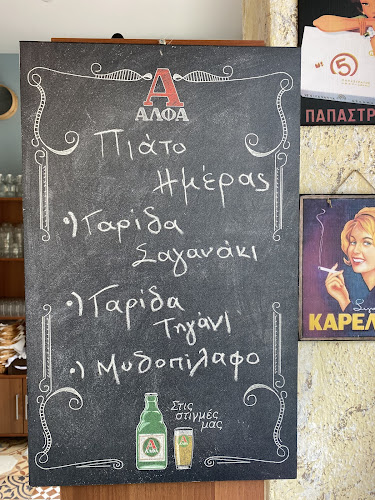 Α
ΑΛΦΑ
Πιάτο
Ημέρας
•) Γαρίδα
Σαγανάκι
•) Γαρίδα
Τηγάνι
•) Μυδοπίλαφο
Στις
στιγμές
μας
5
ΠΑΠΑΣΤΡ
ΚΑΡΕΛ